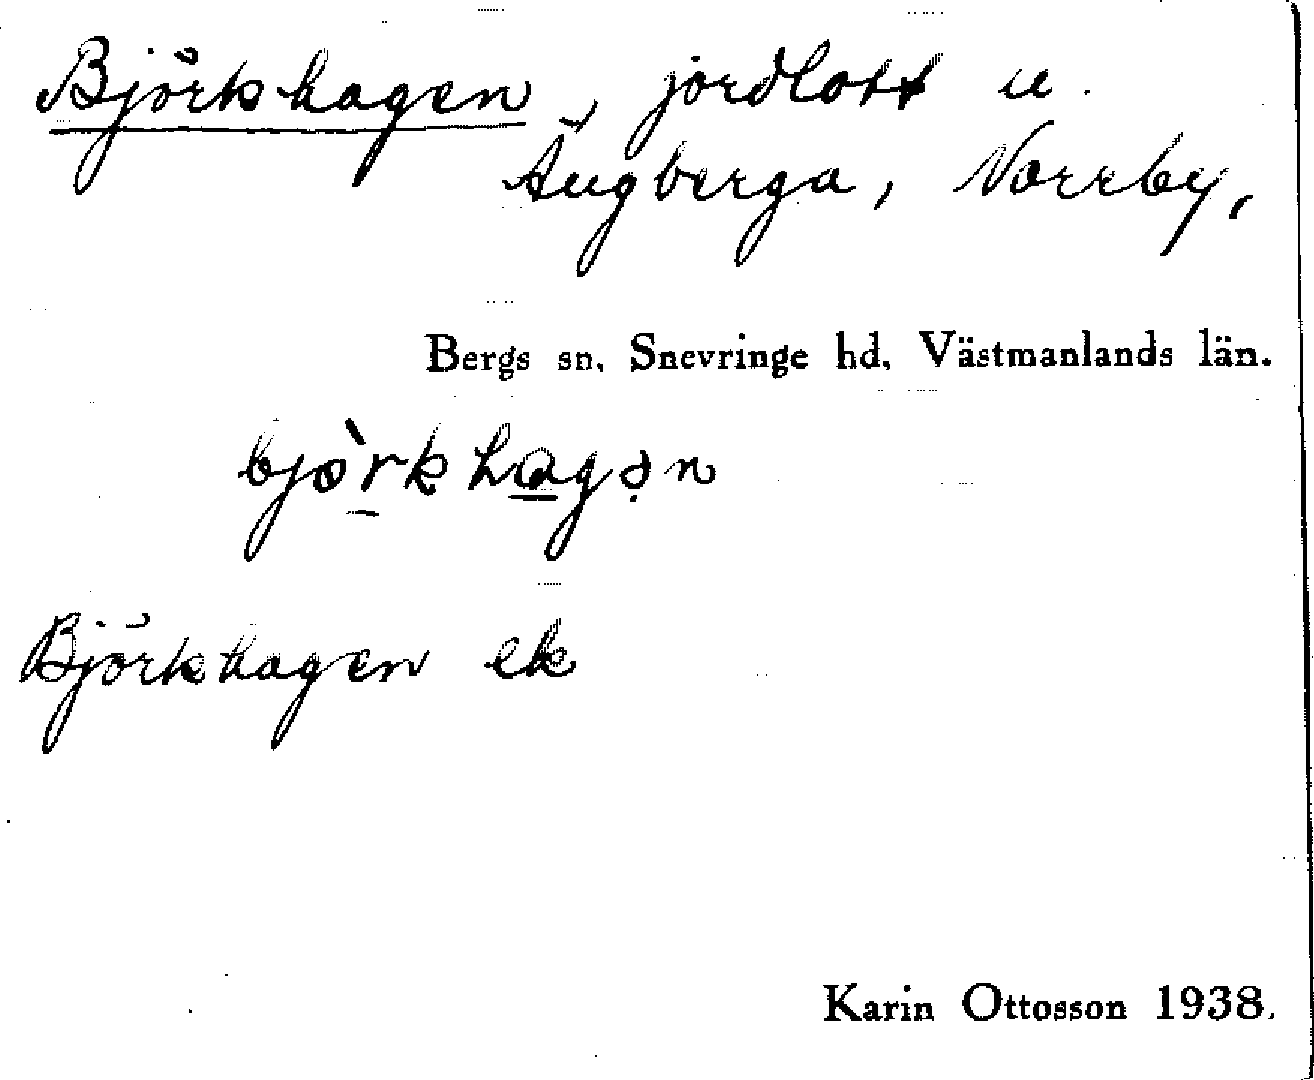 Björkhagen, jordlott u.
Ängberga, Norrby,
Bergs sn, Snevringe hd, Västmanlands län.
bjò̱rkha̱gə̣n
Björkhagen ek
Karin Ottosson 1938.